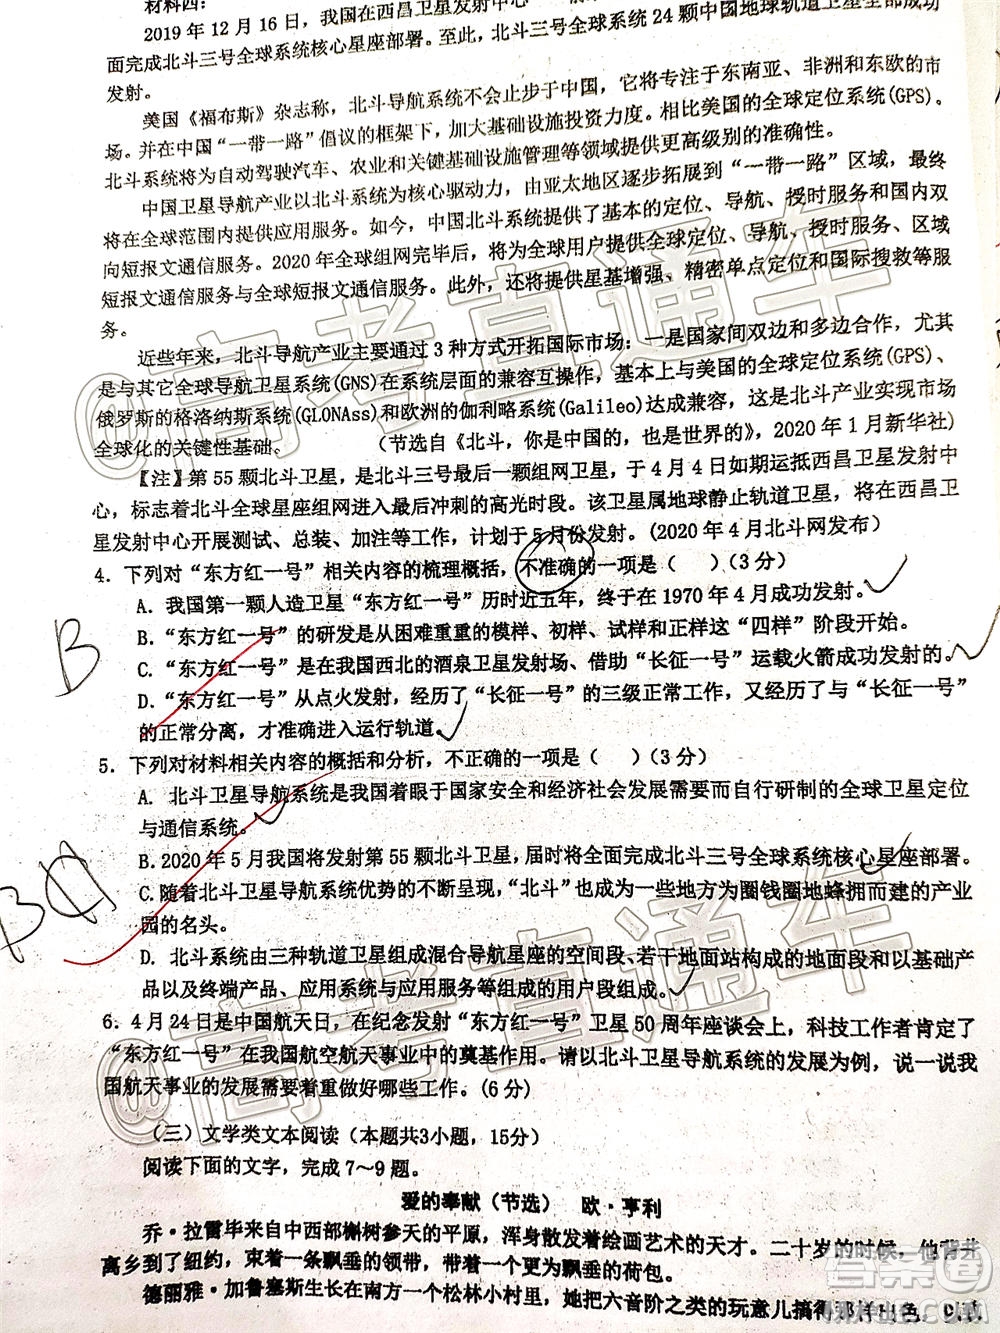 材料四：
2019年12月16日，我国在西昌卫星发射中心
24颗中国地球轨道卫星全部成功
面完成北斗三号全球系统核心星座部署。至此，北斗三号全球系统
发射。
美国《福布斯》杂志称，北斗导航系统不会止步于中国，它将专注于东南亚、非洲和东欧的市
场。并在中国“一带一路”倡议的框架下，加大基础设施投资力度。相比美国的全球定位系统(GPS)，
北斗系统将为自动驾驶汽车、农业和关键基础设施管理等领域提供更高级别的准确性。
中国卫星导航产业以北斗系统为核心驱动力，由亚太地区逐步扩展到“一带一路”区域，最终
将在全球范围内提供应用服务。如今，中国北斗系统提供了基本的定位、导航、授时服务和区域双
向短报文通信服务。2020年全球组网完毕后，将为全球用户提供全球定位、导航、授时服务、区域
短报文通信服务与全球短报文通信服务。此外，还将提供星基增强、精密单点定位和国际搜救等服
务。
近些年来，北斗导航产业主要通过3种方式开拓国际市场：一是国家间双边和多边合作，尤其
是与其它全球导航卫星系统(GNS)在系统层面的兼容互操作，基本上与美国的全球定位系统(GPS)、
俄罗斯的格洛纳斯系统(GLONAss)和欧洲的伽利略系统(Galileo)达成兼容，是北斗产业实现市场
全球化的关键性基础。（节选自《北斗，你是中国的，也是世界的》，2020年1月新华社)
【注】第55颗北斗卫星，是北斗三号最后一颗组网卫星，于4月4日如期运抵西昌卫星发射中
心，标志着北斗全球星座组网进入最后冲刺的高光时段。该卫星属地球静止轨道卫星，将在西昌卫
星发射中心开展测试、总装、加注等工作，计划于5月份发射。(2020年4月北斗网发布）
4．下列对“东方红一号”相关内容的梳理概括，不准确的一项是（ ）（3分）
A．我国第一颗人造卫星“东方红一号”历时近五年，终于在1970年4月成功发射。
B．“东方红一号”的研发是从困难重重的模样、初样、试样和正样这“四样”阶段开始。
C．“东方红一号”是在我国西北的酒泉卫星发射场、借助“长征一号”运载火箭成功发射的。
D．“东方红一号”从点火发射，经历了“长征一号”的三级正常工作，又经历了与“长征一号”
的正常分离，才准确进入运行轨道。
B
5．下列对材料相关内容的概括和分析，不正确的一项是（ ）（3分）
A．北斗卫星导航系统是我国着眼于国家安全和经济社会发展需要而自行研制的全球卫星定位
与通信系统。
B．2020年5月我国将发射第55颗北斗卫星，届时将全面完成北斗三号全球系统核心星座部署。
C．随着北斗卫星导航系统优势的不断呈现，“北斗”也成为一些地方为圈钱圈地蜂拥而建的产业
园的名头。
D．北斗系统由三种轨道卫星组成混合导航星座的空间段、若干地面站构成的地面段和以基础产
品以及终端产品、应用系统与应用服务等组成的用户段组成。
B
6．4月24日是中国航天日，在纪念发射“东方红一号”卫星50周年座谈会上，科技工作者肯定了
“东方红一号”在我国航空航天事业中的奠基作用。请以北斗卫星导航系统的发展为例，说一说我
国航天事业的发展需要着重做好哪些工作。(6分)
（三）文学类文本阅读（本题共3小题，15分）
阅读下面的文字，完成7～9题。
爱的奉献（节选） 欧·亨利
乔·拉雷毕来自中西部槲树参天的平原，浑身散发着绘画艺术的天才。二十岁的时候，他背井
离乡到了纽约，束着一条飘垂的领带，带着一个更为飘垂的荷包。
德丽雅·加鲁塞斯生长在南方一个松林小村里，她把六音阶之类的玩意儿搞得那样出色，以致
@高考直通车
@高考直通车
答案圈